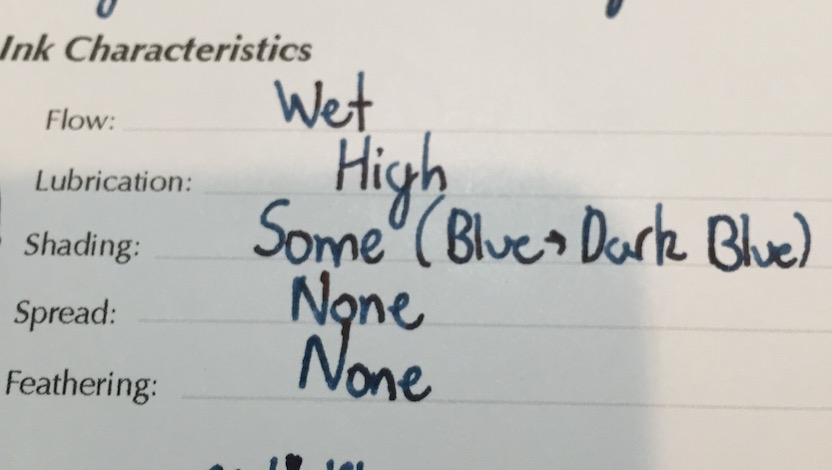 Ink Characteristics
Flow: Wet
Lubrication: High
Shading: Some (Blue → Dark Blue)
Spread: None
Feathering: None